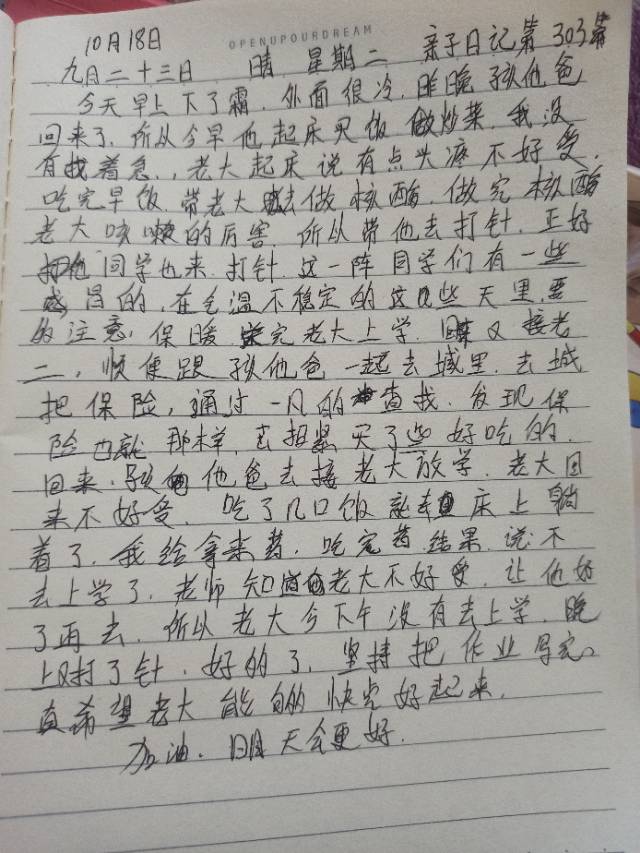 OPENUPOURDREAM
10月18日
九月二十三日 晴 星期二 亲子日记第303篇
今天早上下了霜,外面很冷,昨晚孩他爸
回来了,所以今早他起床 饭 做炒菜,我没
有找着急,老大起床说有点头 不好受,
吃完早饭 带老大 去做核酸,做完核酸
老大咳嗽的厉害,所以带他去打针,正好
他同学也来打针,这一阵同学们有一些
感冒的,在气温不稳定的这几些天里,要
的注意,保暖 完老大上学,回来又接老
二,顺便跟孩他爸一起去城里,去城
把保险,通过一凡的 查找,发现保
险也就那样,去 紧买了些好吃的,
回来,孩 他爸去接老大放学,老大回
来不好受,吃了几口饭就去 床上躺
着了,我给拿来药,吃完药,结果,说不
去上学了,老师知道 老大不好受,让他好
了再去,所以老大今下午没有去上学,晚
上又打了针,好的了,坚持把作业写完。
真希望老大能 的快完好起来,
加油,明天会更好.